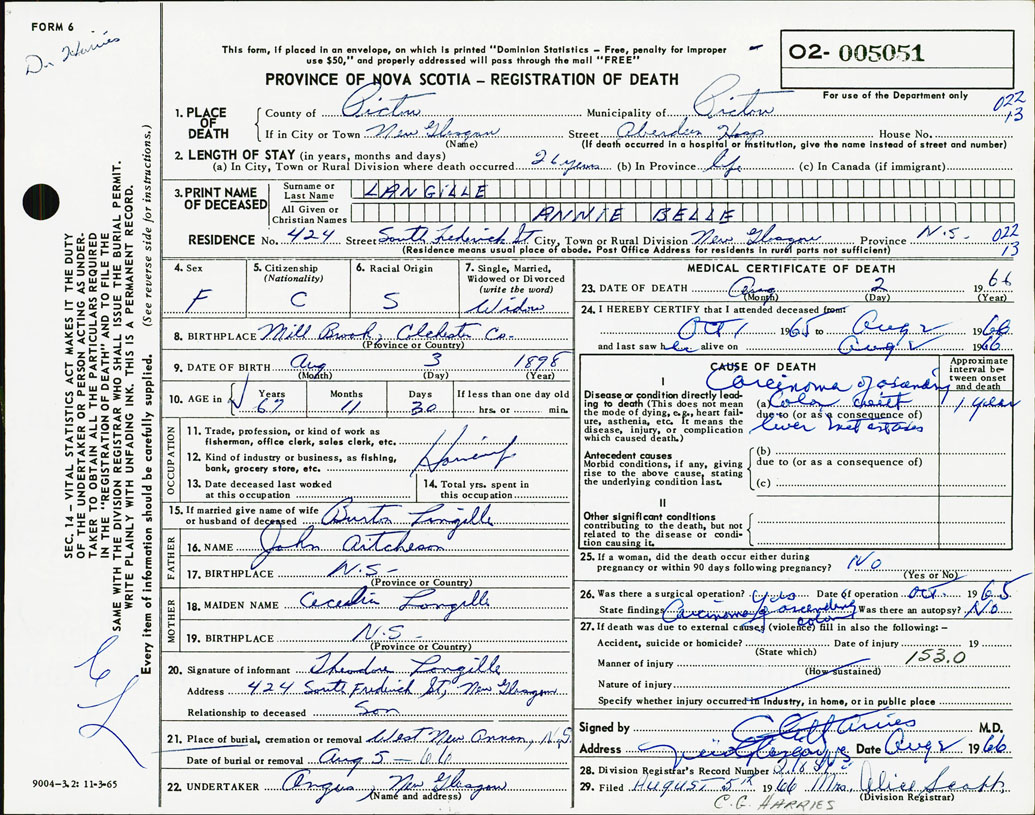 FORM 6
Dr Harries
This form, if placed in an envelope, on which is printed "Dominion Statistics – Free, penalty for improper
use $50," and properly addressed will pass through the mail "FREE"
PROVINCE OF NOVA SCOTIA – REGISTRATION OF DEATH
02- 005051
For use of the Department only
022
13
1. PLACE OF DEATH
County of Pictou Municipality of Pictou
If in City or Town New Glasgow Street Aberdeen Hosp House No.
(Name) (If death occurred in a hospital or institution, give the name instead of street and number)
2. LENGTH OF STAY (in years, months and days)
(a) In City, Town or Rural Division where death occurred 26 years (b) In Province life (c) In Canada (if immigrant)
3. PRINT NAME OF DECEASED
Surname or Last Name LANGILLE
All Given or Christian Names ANNIE BELLE
RESIDENCE No. 424 Street South Frederick St City, Town or Rural Division New Glasgow Province N.S. 022
13
(Residence means usual place of abode. Post Office Address for residents in rural parts not sufficient)
4. Sex F
5. Citizenship (Nationality) C
6. Racial Origin S
7. Single, Married, Widowed or Divorced (write the word) Widow
8. BIRTHPLACE Mill Brook, Colchester Co.
(Province or Country)
9. DATE OF BIRTH Aug 3 1898
(Month) (Day) (Year)
10. AGE in Years 67 Months 11 Days 30 If less than one day old hrs. or min.
OCCUPATION
11. Trade, profession, or kind of work as fisherman, office clerk, sales clerk, etc.
12. Kind of industry or business, as fishing, bank, grocery store, etc.
13. Date deceased last worked at this occupation
14. Total yrs. spent in this occupation
15. If married give name of wife or husband of deceased Burton Langille
FATHER
16. NAME John Aitcheson
17. BIRTHPLACE N.S-
(Province or Country)
MOTHER
18. MAIDEN NAME Langille
19. BIRTHPLACE N.S-
(Province or Country)
20. Signature of informant Theodore Langille
Address 424 South Fredrick St, New Glasgow
Relationship to deceased Son
21. Place of burial, cremation or removal West New Annan, N.S
Date of burial or removal Aug 5 – 66
22. UNDERTAKER Angus, New Glasgow
(Name and address)
MEDICAL CERTIFICATE OF DEATH
23. DATE OF DEATH Aug 2 1966
(Month) (Day) (Year)
24. I HEREBY CERTIFY that I attended deceased from:
Oct 1 1965 to Aug 2 1966
and last saw her alive on Aug 2 1966
CAUSE OF DEATH
Approximate interval between onset and death
I
Disease or condition directly leading to death (This does not mean the mode of dying, e.g., heart failure, asthenia, etc. It means the disease, injury, or complication which caused death.)
Carcinoma of ascending
(a) Colon 1 year
due to (or as a consequence of)
liver metastases
Antecedent causes
Morbid conditions, if any, giving rise to the above cause, stating the underlying condition last.
(b)
due to (or as a consequence of)
(c)
II
Other significant conditions
contributing to the death, but not related to the disease or condition causing it.
25. If a woman, did the death occur either during
pregnancy or within 90 days following pregnancy? No
(Yes or No)
26. Was there a surgical operation? Yes Date of operation Oct. 1965
State findings Carcinoma of ascending colon Was there an autopsy? No
27. If death was due to external causes (violence) fill in also the following:–
Accident, suicide or homicide? Date of injury 19
(State which)
Manner of injury 153.0
(How sustained)
Nature of injury
Specify whether injury occurred in industry, in home, or in public place
Signed by CG Harries M.D.
Address New Glasgow Date Aug 2 1966
28. Division Registrar's Record Number
29. Filed August 5th 1966 Mrs. Alice Scott
(Division Registrar)
C.G. HARRIES
SEC. 14 – VITAL STATISTICS ACT MAKES IT THE DUTY
OF THE UNDERTAKER OR PERSON ACTING AS UNDER-
TAKER TO OBTAIN ALL THE PARTICULARS REQUIRED
IN THE "REGISTRATION OF DEATH" AND TO FILE THE
SAME WITH THE DIVISION REGISTRAR WHO SHALL ISSUE THE BURIAL PERMIT.
WRITE PLAINLY WITH UNFADING INK. THIS IS A PERMANENT RECORD.
Every item of information should be carefully supplied. (See reverse side for instructions.)
CL
9004–3.2: 11-3-65